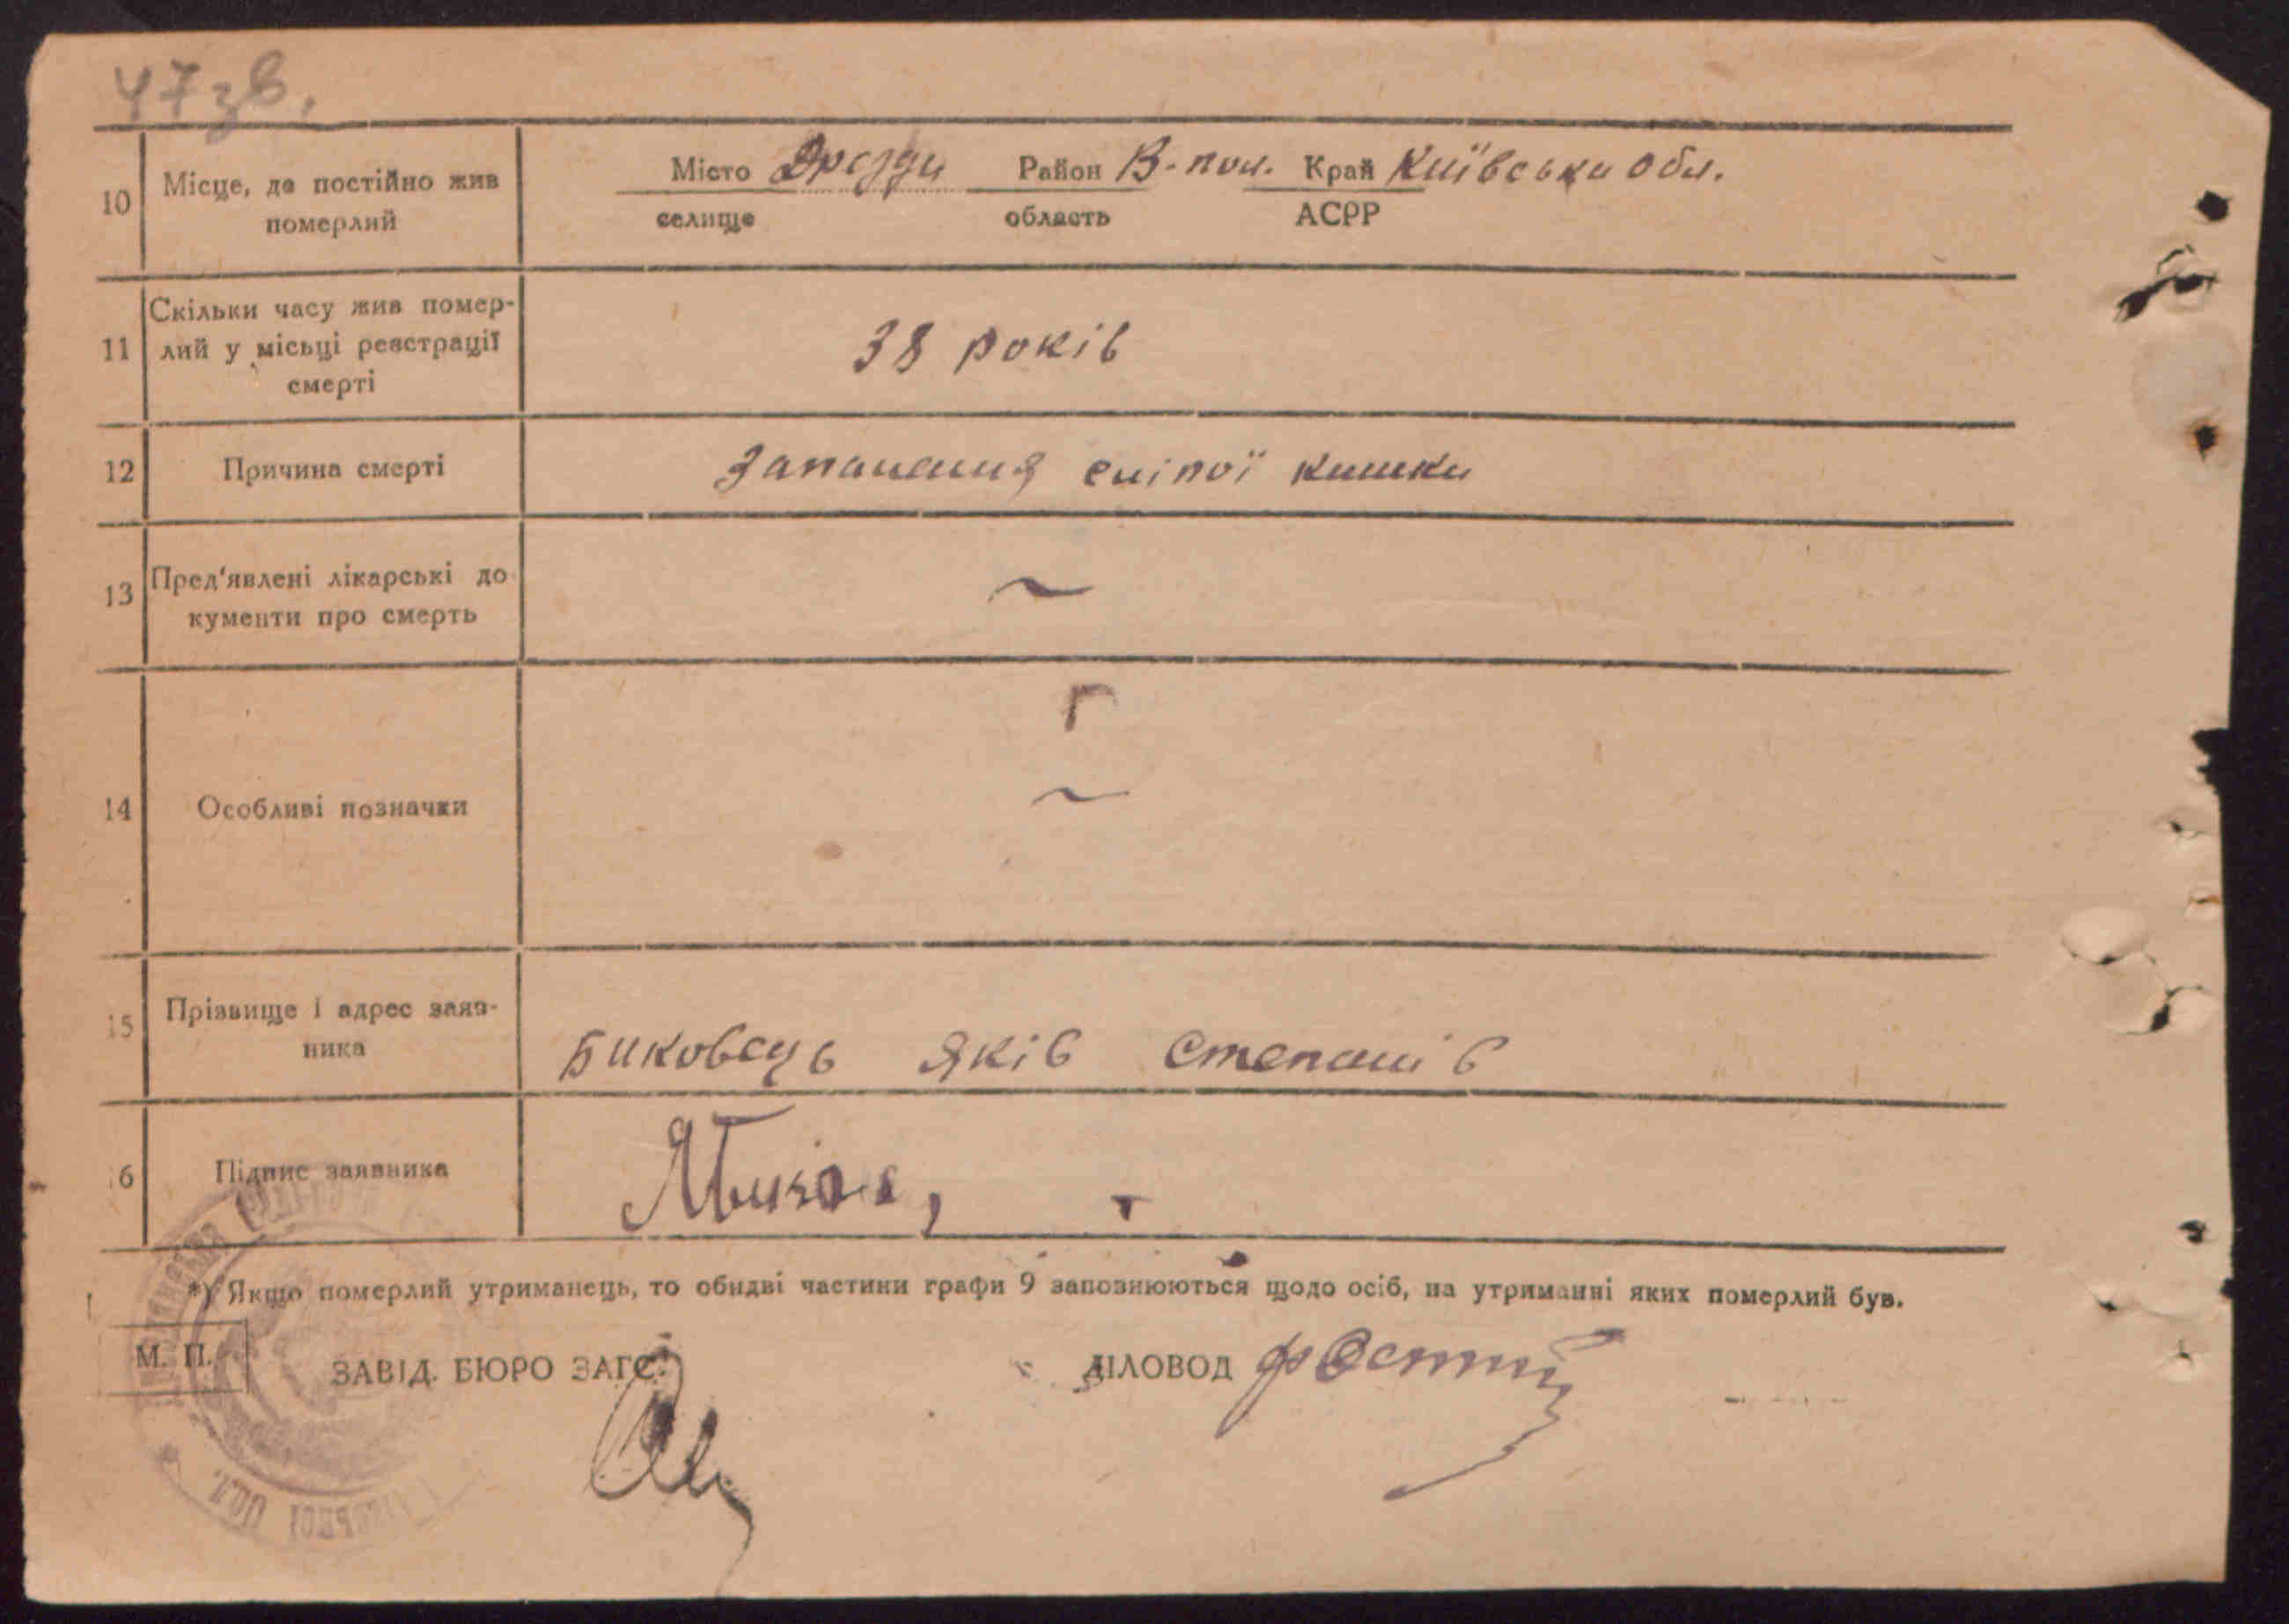 47 зв.
10 Місце, де постійно жив померлий
Місто Дрозди Район В-пол. Край Київська обл.
селище область АСРР
11 Скільки часу жив помер-
лий у місьці реєстрації
смерті
38 років
12 Причина смерті
Запалення сліпої кишки
13 Пред'явлені лікарські до
кументи про смерть
~
Г
14 Особливі позначки
~
15 Прізвище і адрес заяв-
ника
Биковець Яків Степанів
6 Підпис заявника
*) Якщо померлий утриманець, то обидві частини графи 9 заповнюються щодо осіб, на утриманні яких померлий був.
М. П.
ЗАВІД. БЮРО ЗАГС:
ДІЛОВОД